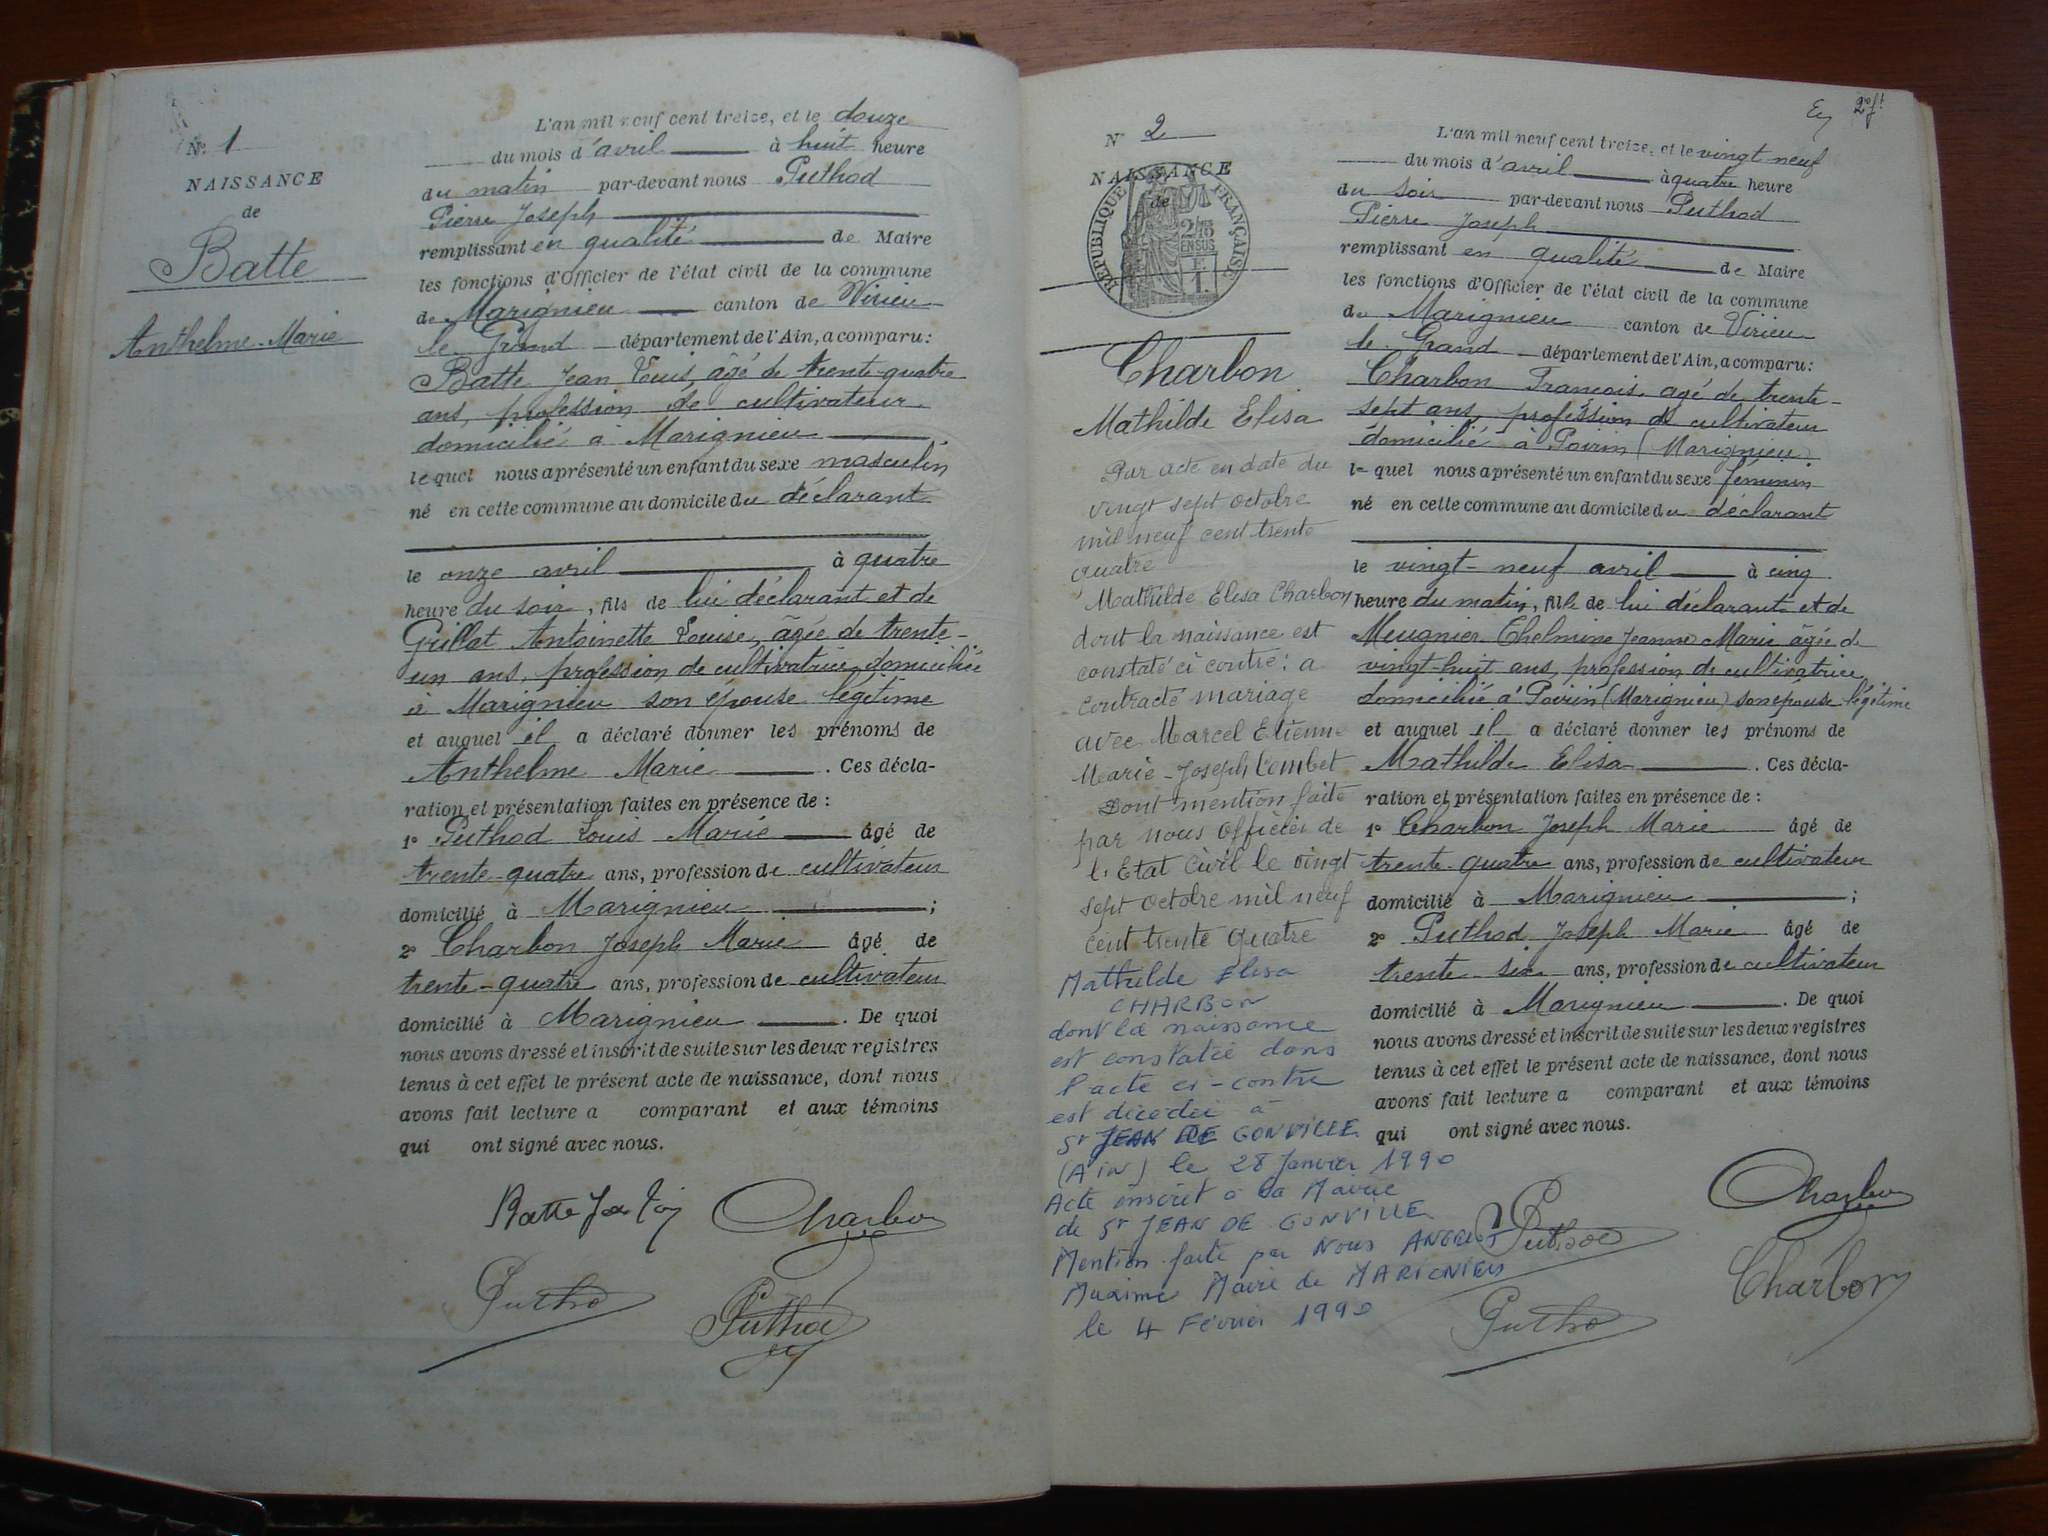 N° 1
NAISSANCE
de
Batte
Anthelme-Marie
L'an mil neuf cent treize, et le douze
du mois d'avril à huit heure
du matin par-devant nous Puthod
Pierre Joseph
remplissant en qualité de Maire
les fonctions d'Officier de l'état civil de la commune
de Marignieu canton de Virieu
le Grand département de l'Ain, a comparu:
Batte Jean Louis, âgé de trente-quatre
ans, profession de cultivateur
domicilié à Marignieu
lequel nous a présenté un enfant du sexe masculin
né en cette commune au domicile du déclarant
le onze avril à quatre
heure du soir, fils de lui déclarant et de
Grillat Antoinette Louise, âgée de trente-
un ans, profession de cultivatrice, domiciliée
à Marignieu son épouse légitime
et auquel il a déclaré donner les prénoms de
Anthelme Marie. Ces décla-
ration et présentation faites en présence de :
1° Puthod Louis Marie âgé de
trente-quatre ans, profession de cultivateur
domicilié à Marignieu ;
2° Charbon Joseph Marie âgé de
trente-quatre ans, profession de cultivateur
domicilié à Marignieu. De quoi
nous avons dressé et inscrit de suite sur les deux registres
tenus à cet effet le présent acte de naissance, dont nous
avons fait lecture a comparant et aux témoins
qui ont signé avec nous.
Batte Charbon
Puthod Puthod
N° 2
NAISSANCE
de
RÉPUBLIQUE FRANÇAISE
2/10
EN SUS
Charbon
Mathilde Elisa
Par acte en date du
vingt sept octobre
mil neuf cent trente
quatre
Mathilde Elisa Charbon
dont la naissance est
constaté ci contre : a
contracté mariage
avec Marcel Etienne
Marie-Joseph Combet
Dont mention faite
par nous Officier de
l'Etat Civil le vingt
sept octobre mil neuf
cent trente quatre
Mathilde Elisa
CHARBON
dont la naissance
est constatée dans
l'acte ci-contre
est décédée à
St JEAN DE GONVILLE
(Ain) le 28 Janvier 1990
Acte inscrit à la Mairie
de St JEAN DE GONVILLE
Mention faite par Nous
Maxime Maire de MARIGNIEU
le 4 Février 1990
L'an mil neuf cent treize, et le vingt neuf
du mois d'avril à quatre heure
du soir par-devant nous Puthod
Pierre Joseph
remplissant en qualité de Maire
les fonctions d'Officier de l'état civil de la commune
de Marignieu canton de Virieu
le Grand département de l'Ain, a comparu:
Charbon François, agé de trente-
sept ans, profession de cultivateur
domicilié à Poirin (Marignieu)
lequel nous a présenté un enfant du sexe féminin
né en cette commune au domicile du déclarant
le vingt-neuf avril à cinq
heure du matin, fille de lui déclarant et de
Meugnier Thelmine Jeanne Marie, âgée de
vingt-huit ans, profession de cultivatrice
domiciliée à Poirin (Marignieu) son épouse légitime
et auquel il a déclaré donner les prénoms de
Mathilde Elisa. Ces décla-
ration et présentation faites en présence de :
1° Charbon Joseph Marie âgé de
trente-quatre ans, profession de cultivateur
domicilié à Marignieu ;
2° Puthod Joseph Marie âgé de
trente six ans, profession de cultivateur
domicilié à Marignieu. De quoi
nous avons dressé et inscrit de suite sur les deux registres
tenus à cet effet le présent acte de naissance, dont nous
avons fait lecture a comparant et aux témoins
qui ont signé avec nous.
Puthod Charbon
Puthod Charbon